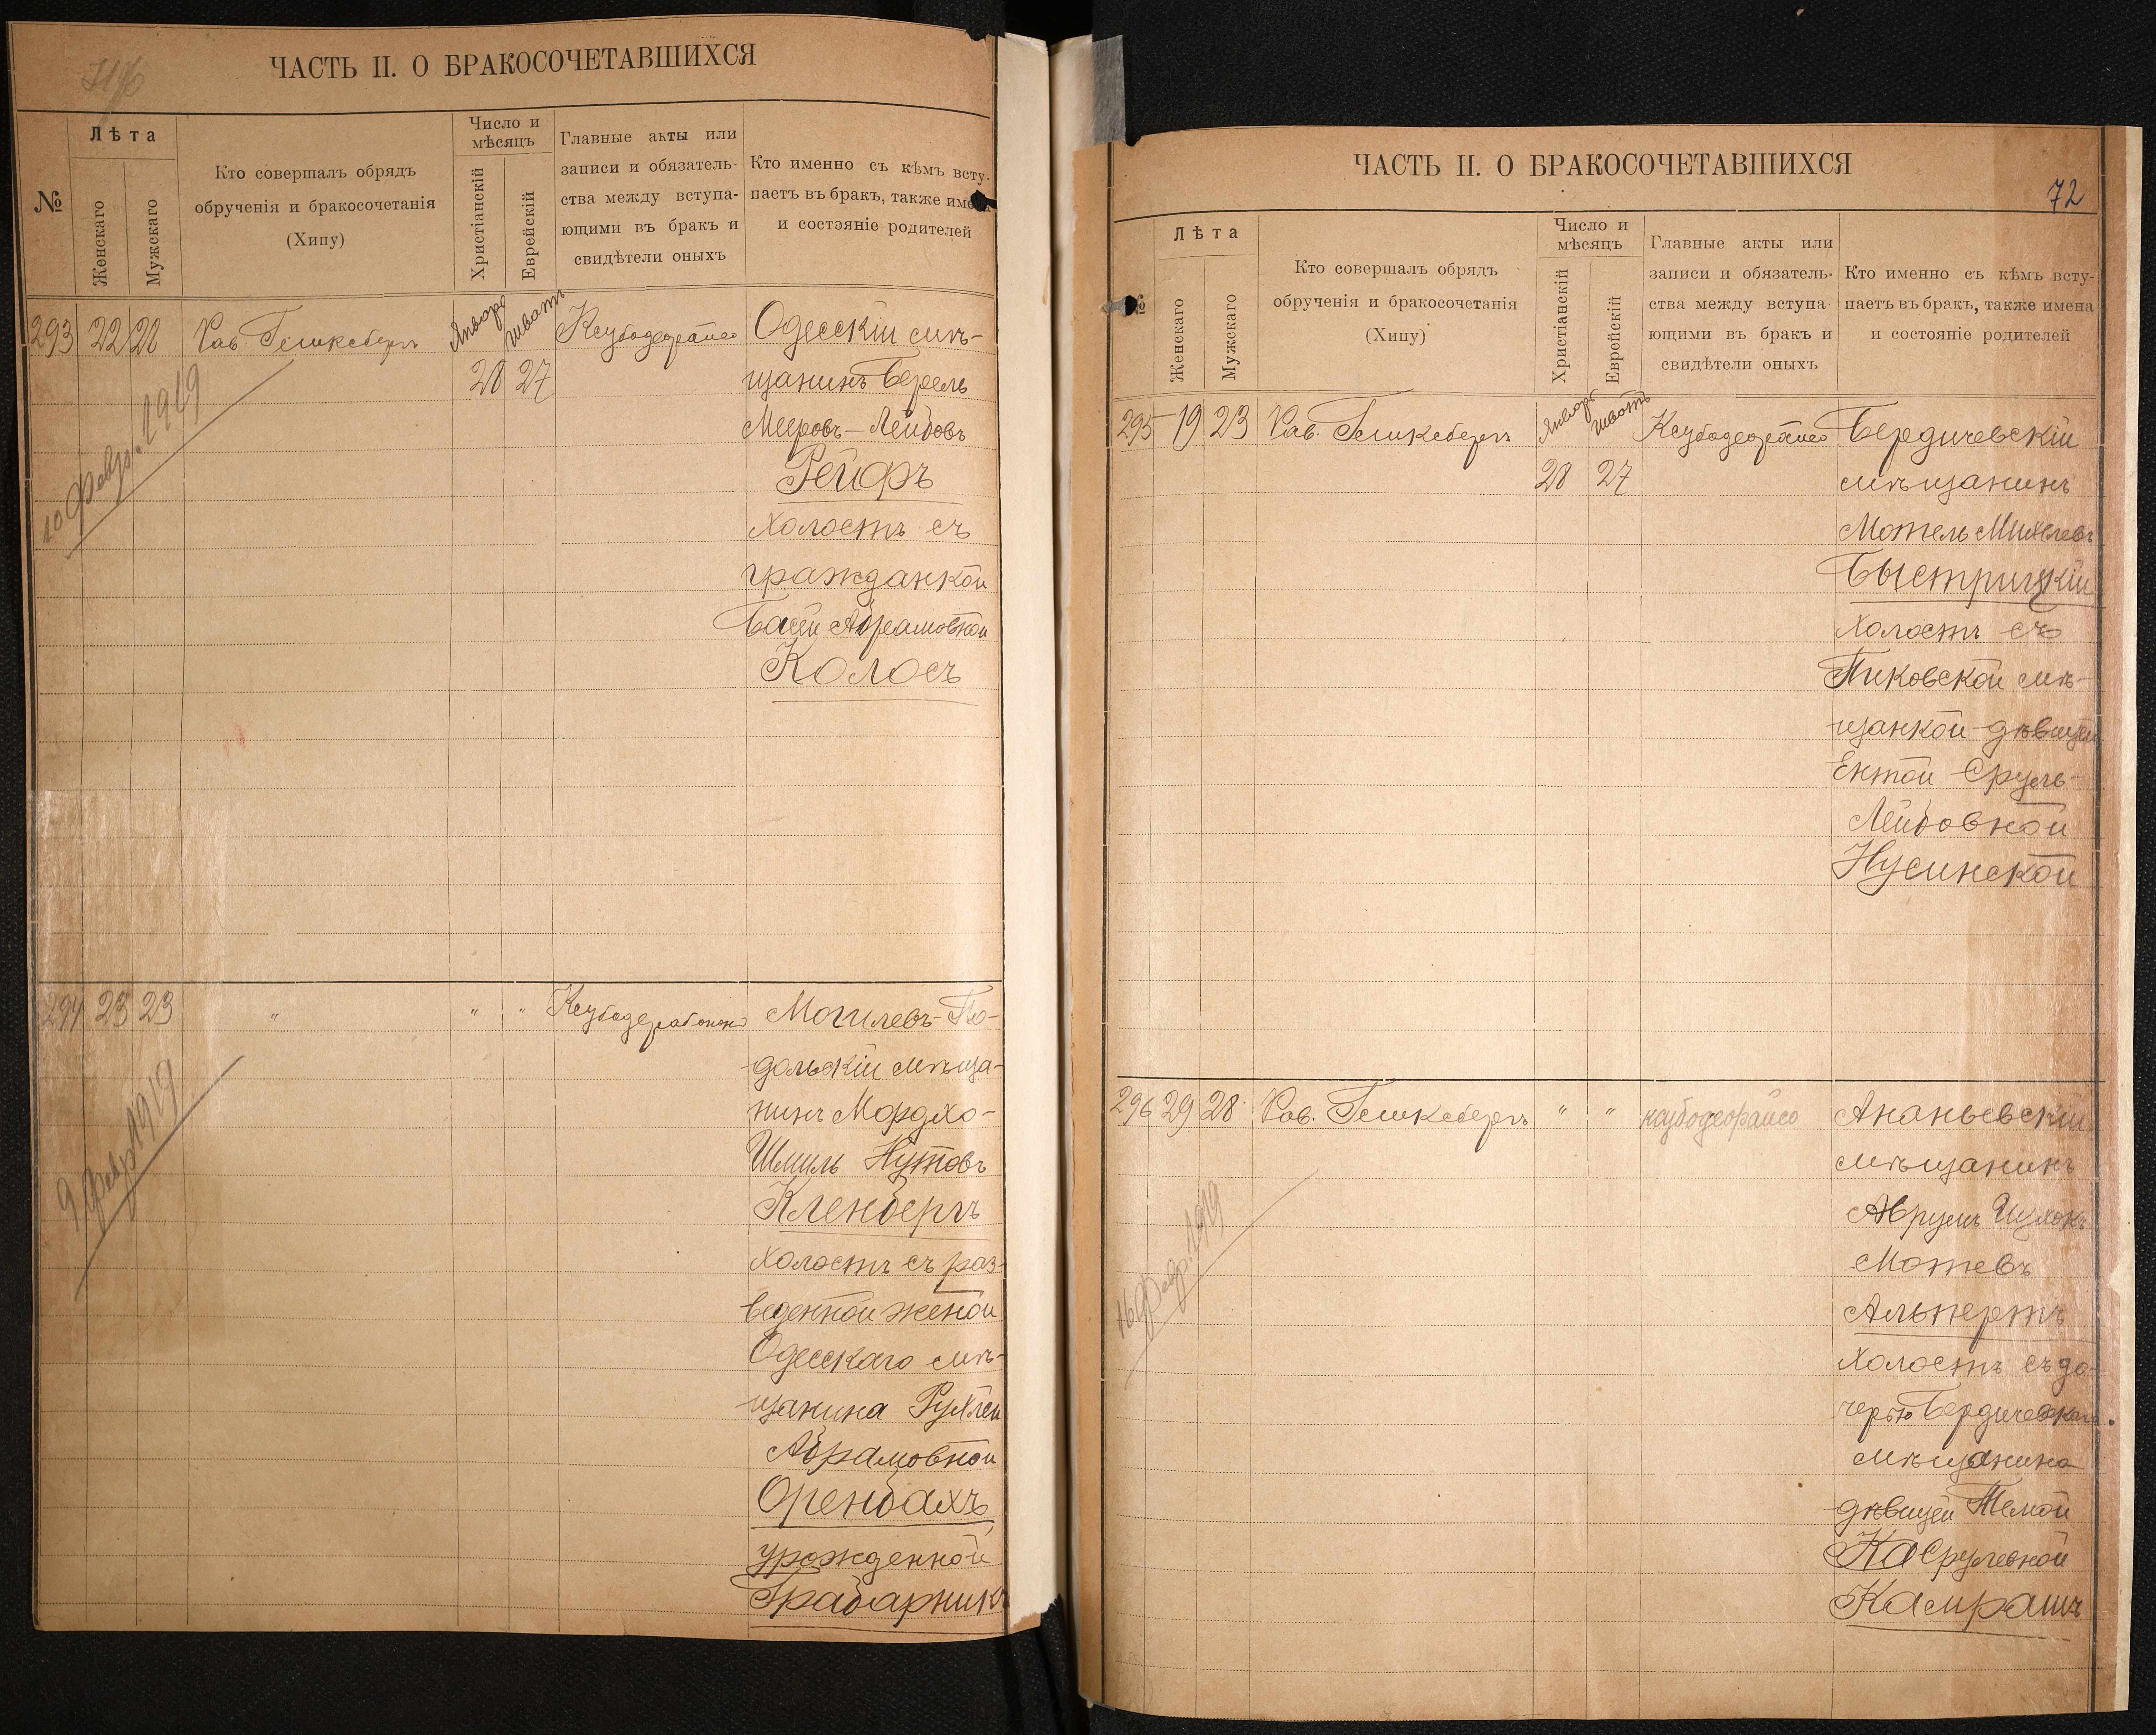 ЧАСТЬ II. О БРАКОСОЧЕТАВШИХСЯ
№
Лѣта
Женскаго
Мужскаго
Кто совершалъ обрядъ
обрученія и бракосочетанія
(Хипу)
Число и
мѣсяцъ
Христіанскій
Еврейскій
Главные акты или
записи и обязатель-
ства между вступа-
ющими въ бракъ и
свидѣтели оныхъ
Кто именно съ кѣмъ всту-
паетъ въ бракъ, также имена
и состояніе родителей
293 22 28
Рав
Январь
28
шватъ
27
10 Февр. 1919
Одесскій мѣ-
щанинъ Берель
Мееровъ-Лейбовъ
Рейфъ
холостъ съ
гражданкой
Басей Абрамовной
Колосъ
294 23 23 " " "
9 Февр 1919
Могилевъ-По-
дольскій мѣща-
нинъ Мордхо-
Шмиль Нутовъ
Кленбергъ
холостъ съ раз-
веденной женой
Одесскаго мѣ-
щанина Рухлей
Абрамовной
Оренбахъ
урожденной
Грабарникъ
ЧАСТЬ II. О БРАКОСОЧЕТАВШИХСЯ
72
№
Лѣта
Женскаго
Мужскаго
Кто совершалъ обрядъ
обрученія и бракосочетанія
(Хипу)
Число и
мѣсяцъ
Христіанскій
Еврейскій
Главные акты или
записи и обязатель-
ства между вступа-
ющими въ бракъ и
свидѣтели оныхъ
Кто именно съ кѣмъ всту-
паетъ въ бракъ, также имена
и состояніе родителей
295 19 23
Рав.
Январь
28
шватъ
27
Бердичевскій
мѣщанинъ
Мотель Михелевъ
Быстрицкій
холостъ съ
Пиковской мѣ-
щанкой дѣвицей
Ентой Сруль-
Лейбовной
Нусинской
296 29 28
Рав. " "
16 Февр. 1919
Ананьевскій
мѣщанинъ
Аврумъ Ицхокъ
Мотевъ
Альпертъ
холостъ съ до-
черью Бердичевскаго
мѣщанина
дѣвицей Темой
Касрулевной
Камрашъ